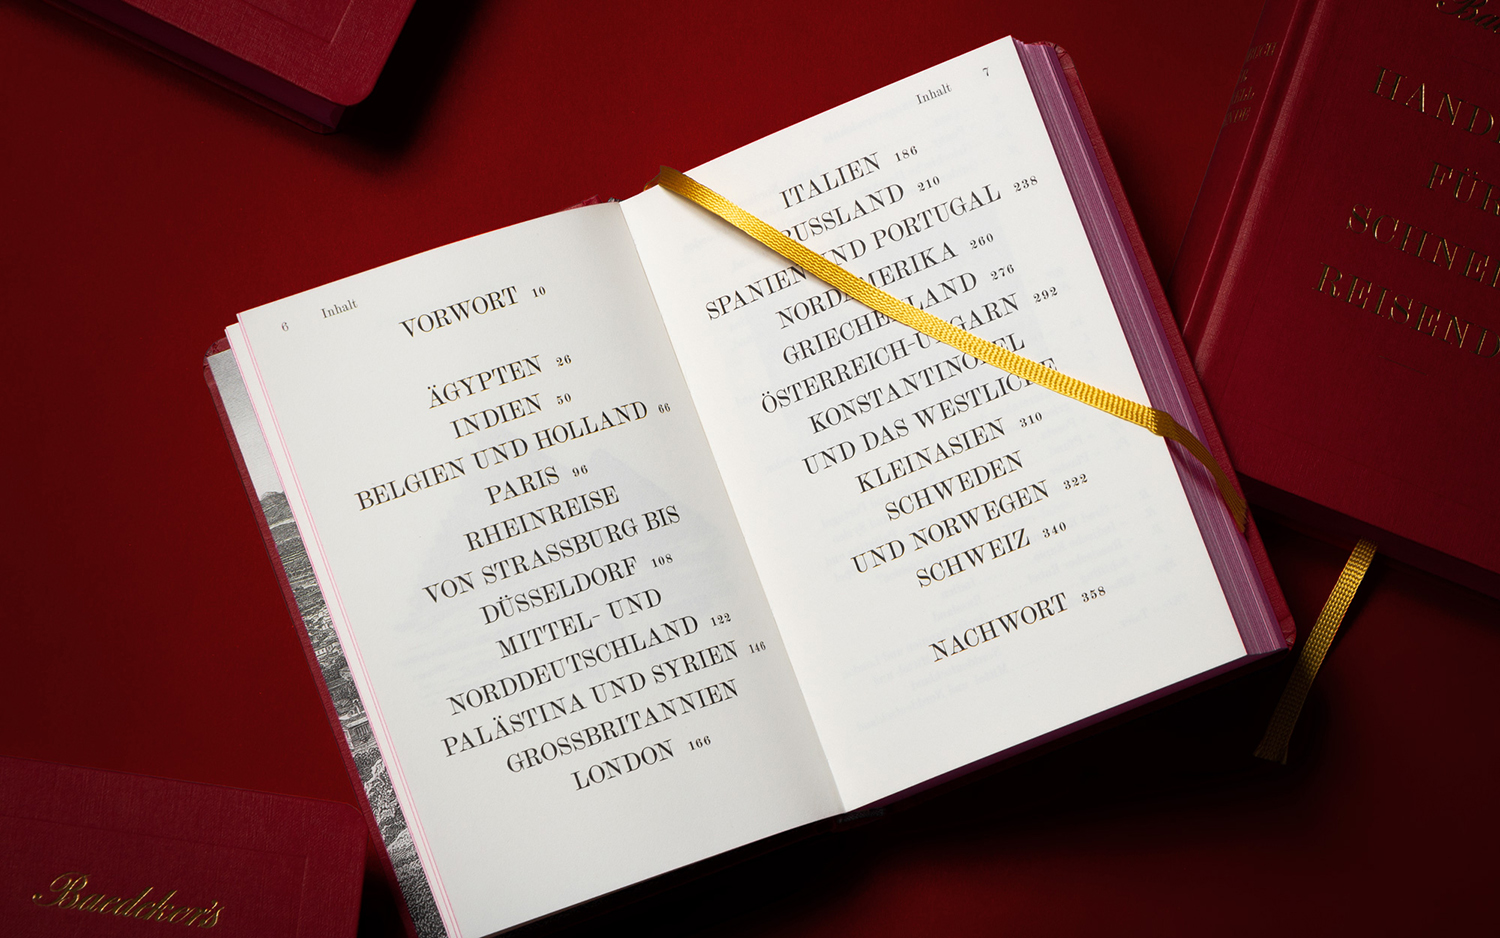 6 Inhalt
VORWORT 10
ÄGYPTEN 26
INDIEN 50
BELGIEN UND HOLLAND 66
PARIS 96
RHEINREISE
VON STRASSBURG BIS
DÜSSELDORF 108
MITTEL- UND
NORDDEUTSCHLAND 122
PALÄSTINA UND SYRIEN 146
GROSSBRITANNIEN
LONDON 166
Inhalt 7
ITALIEN 186
RUSSLAND 210
SPANIEN UND PORTUGAL 238
NORDAMERIKA 260
GRIECHENLAND 276
ÖSTERREICH-UNGARN 292
KONSTANTINOPEL
UND DAS WESTLICHE
KLEINASIEN 310
SCHWEDEN
UND NORWEGEN 322
SCHWEIZ 340
NACHWORT 358
Baedeker's
HAND
FÜR
SCHNEL
REISEND